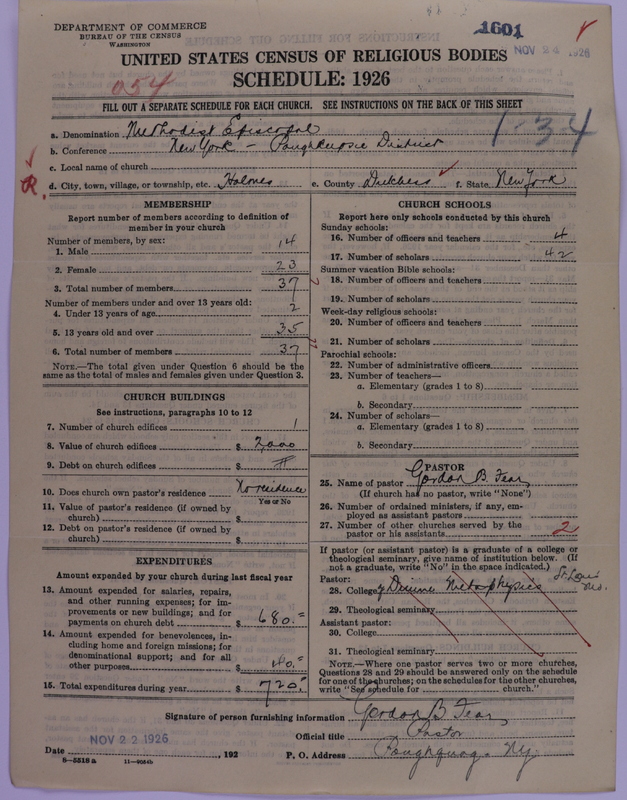 DEPARTMENT OF COMMERCE
BUREAU OF THE CENSUS
WASHINGTON
1601
NOV 24 1926
UNITED STATES CENSUS OF RELIGIOUS BODIES
SCHEDULE: 1926
054
FILL OUT A SEPARATE SCHEDULE FOR EACH CHURCH. SEE INSTRUCTIONS ON THE BACK OF THIS SHEET
1-34
a. Denomination Methodist Episcopal
b. Conference New York - Poughkeepsie District
c. Local name of church
R.
d. City, town, village, or township, etc. Holmes e. County Dutchess f. State New York
MEMBERSHIP
Report number of members according to definition of
member in your church
Number of members, by sex:
1. Male 14
2. Female 23
3. Total number of members 37
Number of members under and over 13 years old:
4. Under 13 years of age 2
5. 13 years old and over 35
6. Total number of members 37
NOTE.—The total given under Question 6 should be
same as the total of males and females given under Question 3.
CHURCH BUILDINGS
See instructions, paragraphs 10 to 12
7. Number of church edifices 1
8. Value of church edifices $ 2,000
9. Debt on church edifices $
10. Does church own pastor's residence No residence
Yes or No
11. Value of pastor's residence (if owned by
church) $
12. Debt on pastor's residence (if owned by
church) $
EXPENDITURES
Amount expended by your church during last fiscal year
13. Amount expended for salaries, repairs,
and other running expenses; for im-
provements or new buildings; and for
payments on church debt $ 680.=
14. Amount expended for benevolences, in-
cluding home and foreign missions; for
denominational support; and for all
other purposes $ 40.=
15. Total expenditures during year $ 720.=
CHURCH SCHOOLS
Report here only schools conducted by this church
Sunday schools:
16. Number of officers and teachers 4
17. Number of scholars 42
Summer vacation Bible schools:
18. Number of officers and teachers
19. Number of scholars
Week-day religious schools:
20. Number of officers and teachers
21. Number of scholars
Parochial schools:
22. Number of administrative officers
23. Number of teachers—
a. Elementary (grades 1 to 8)
b. Secondary
24. Number of scholars—
a. Elementary (grades 1 to 8)
b. Secondary
PASTOR
25. Name of pastor Gordon B. Fear
(If church has no pastor, write "None")
26. Number of ordained ministers, if any, em-
ployed as assistant pastors
27. Number of other churches served by the
pastor or his assistants 2
If pastor (or assistant pastor) is a graduate of a college or
theological seminary, give name of institution below. (If
not a graduate, write "No" in the space indicated.)
Pastor:
28. College of Divine Metaphysics St. Louis Mo.
29. Theological seminary
Assistant pastor:
30. College
31. Theological seminary
NOTE.—Where one pastor serves two or more churches,
Questions 28 and 29 should be answered only on the schedule
for one of the churches; on the schedules for the other churches,
write "See schedule for church."
Signature of person furnishing information Gordon B Fear
Official title Pastor
Date NOV 22 1926, 192 P. O. Address Poughquag. N.Y.
8-5518 a 11-9084b